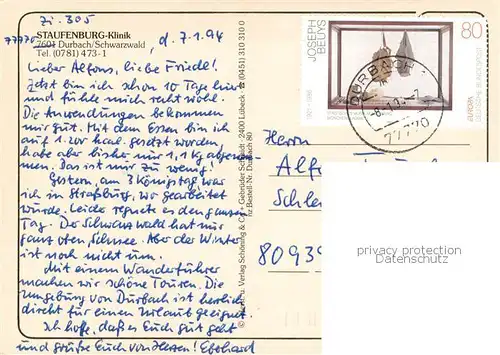 Zi. 305
STAUFENBURG-Klinik
77770 7601 Durbach/Schwarzwald
Tel. (0781) 473-1
d. 7.1.94
Lieber Alfons, liebe Friedl!
Jetzt bin ich schon 10 Tage hier
und fühle mich recht wohl.
Die Anwendungen bekommen
mir gut. Mit dem Essen bin ich
auf 1.200 kal. gesetzt worden,
habe aber bisher nur 1,1 kg abgenom-
men. Das ist nur zu wenig!
Gestern, am 3 Königstag, war
ich in Straßburg, wo gearbeitet
wurde. Leider regnet es den ganzen
Tag. Der Schwarzwald hat nur
ganz oben Schnee. Aber der Winter
ist noch nicht um.
Mit einem Wanderführer
machen wir schöne Touren. Die
Umgebung von Durbach ist herrlich
direkt für einen Urlaub geeignet.
Ich hoffe, daß es Euch gut geht
und grüße Euch von Herzen! Eberhard
Verlag Schöning & Co + Gebrüder Schmidt · 2400 Lübeck · ☎ (0451) 31 03 10
Bestell-Nr. Durbach 80
JOSEPH
BEUYS
1921-1986
80
EUROPA
DEUTSCHE BUNDESPOST
DURBACH
77770
Herrn
Alf
Schle
80939
privacy protection
www.oldthing.de